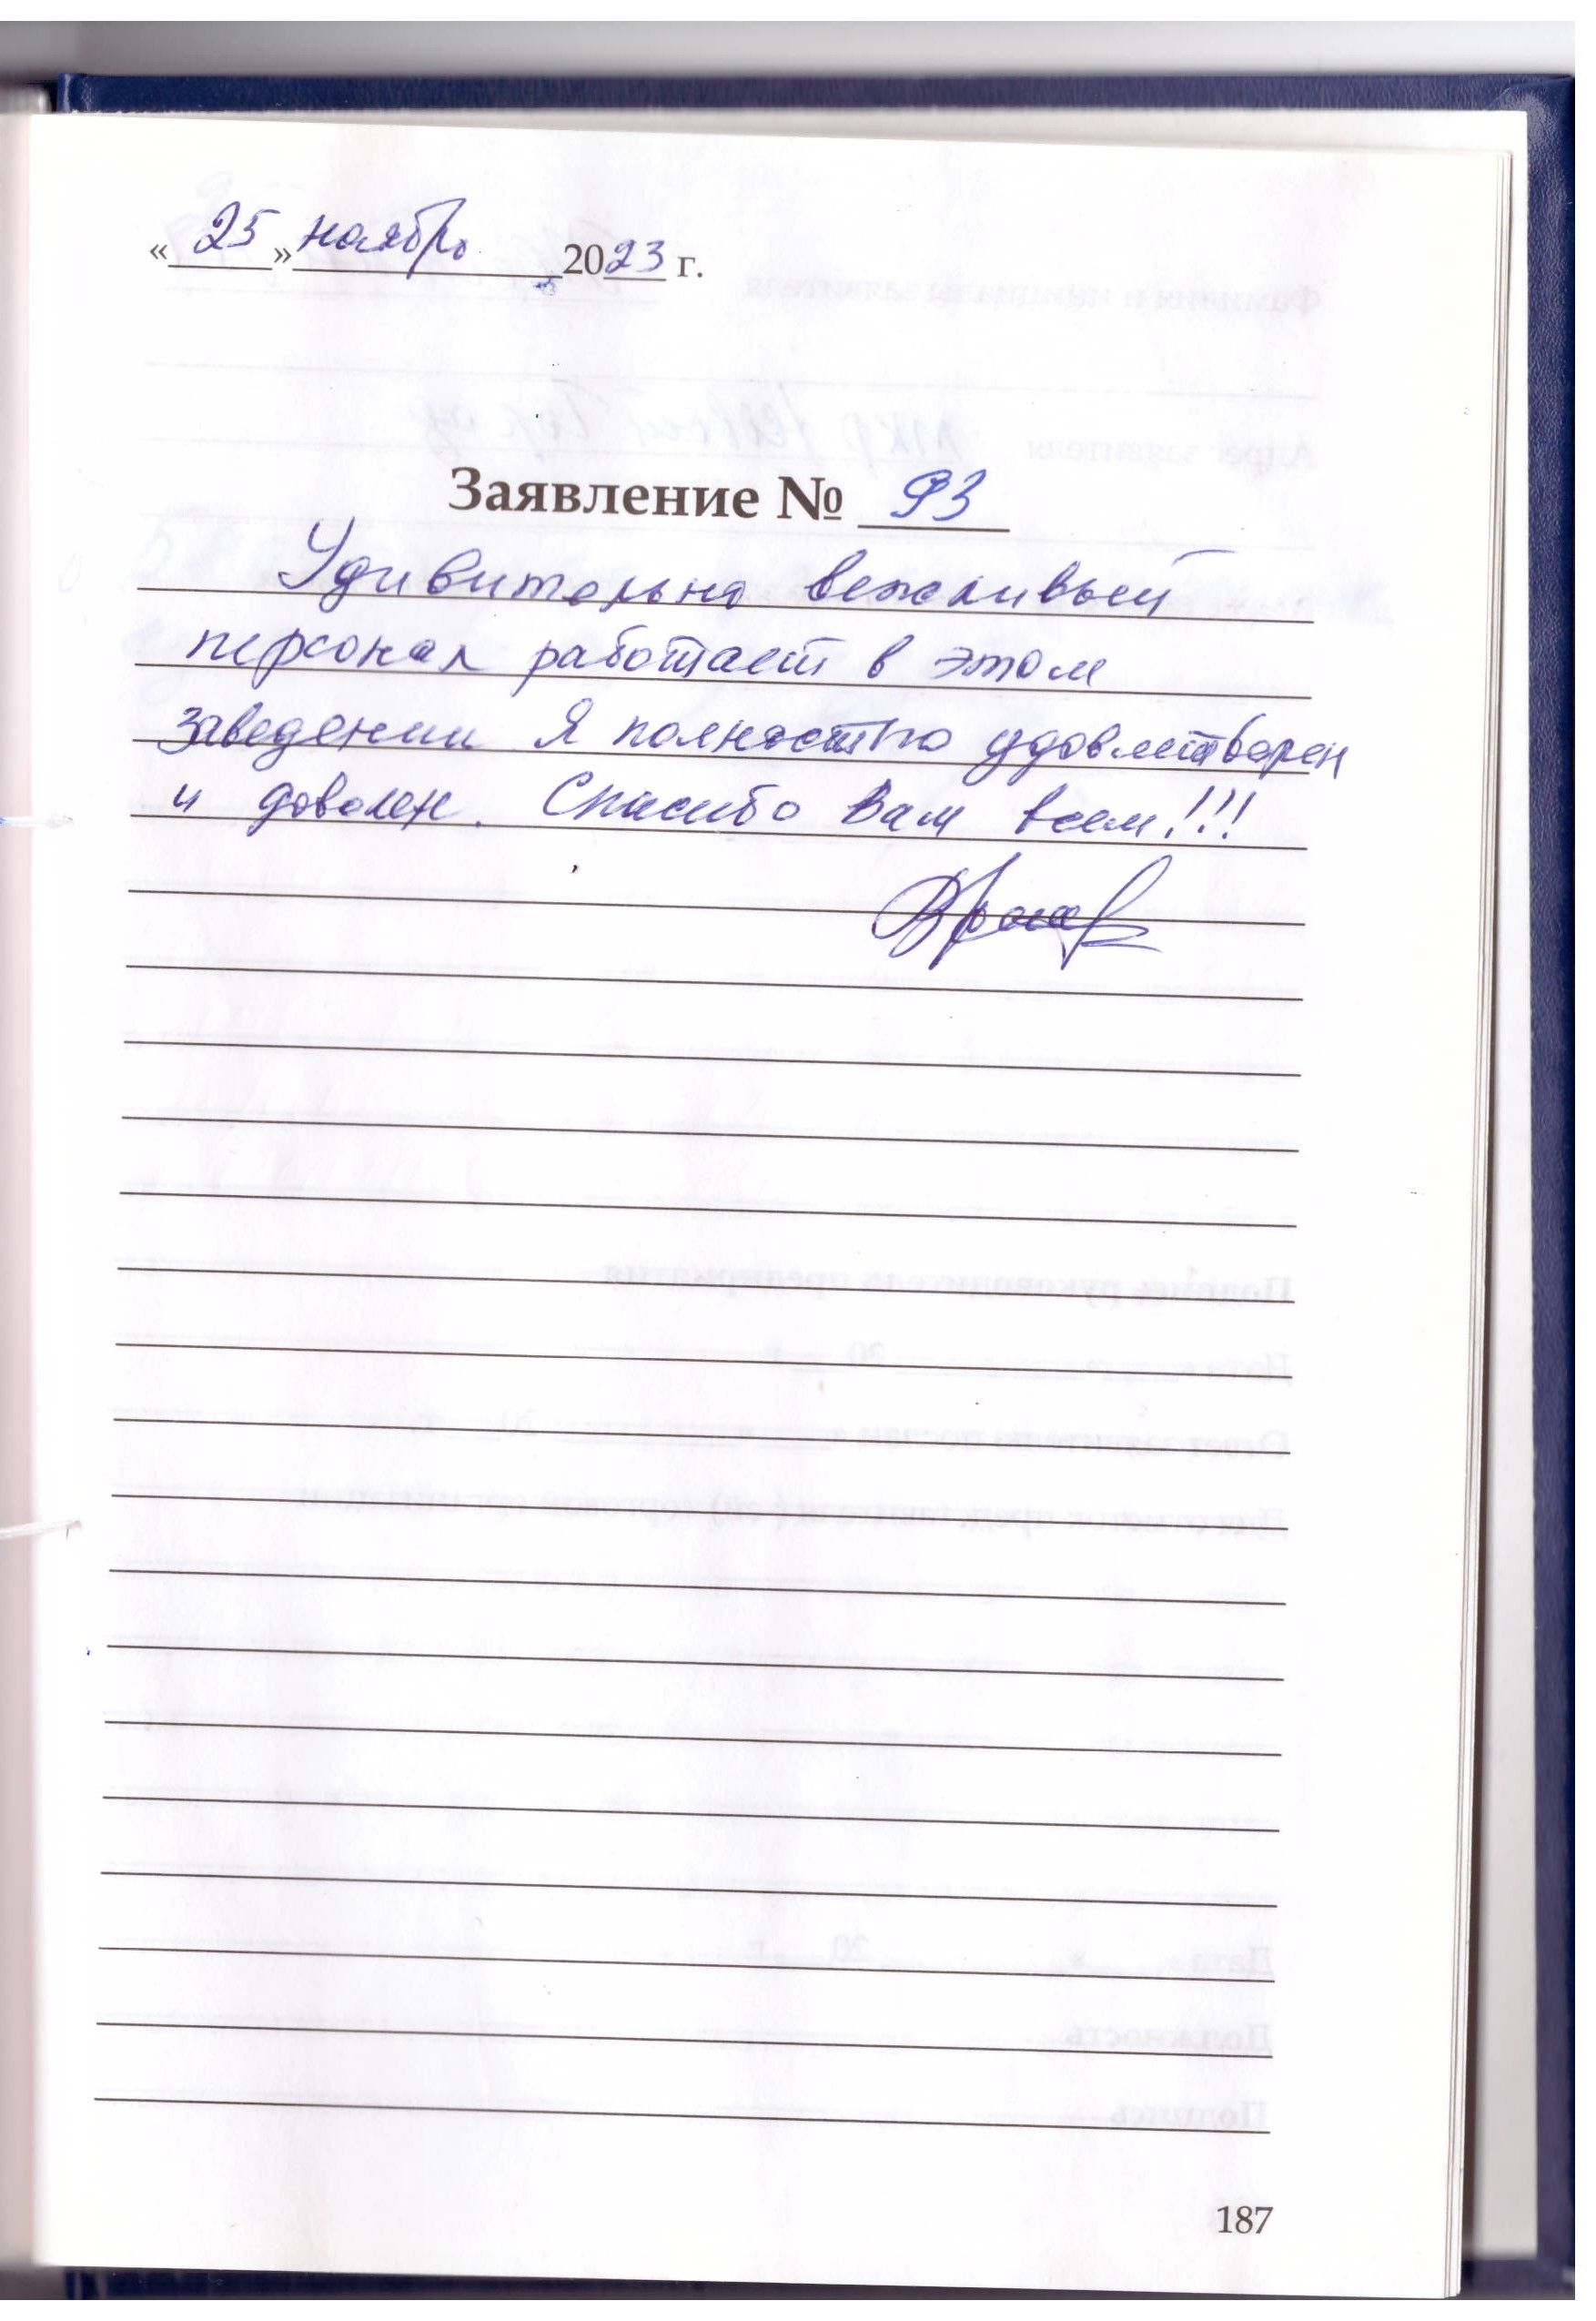 « 25 » ноябрь 2023 г.
Заявление № 93
Удивительно вежливый
персонал работает в этом
заведении Я полностью удовлетворен
и доволен. Спасибо Вам всем!!!
187